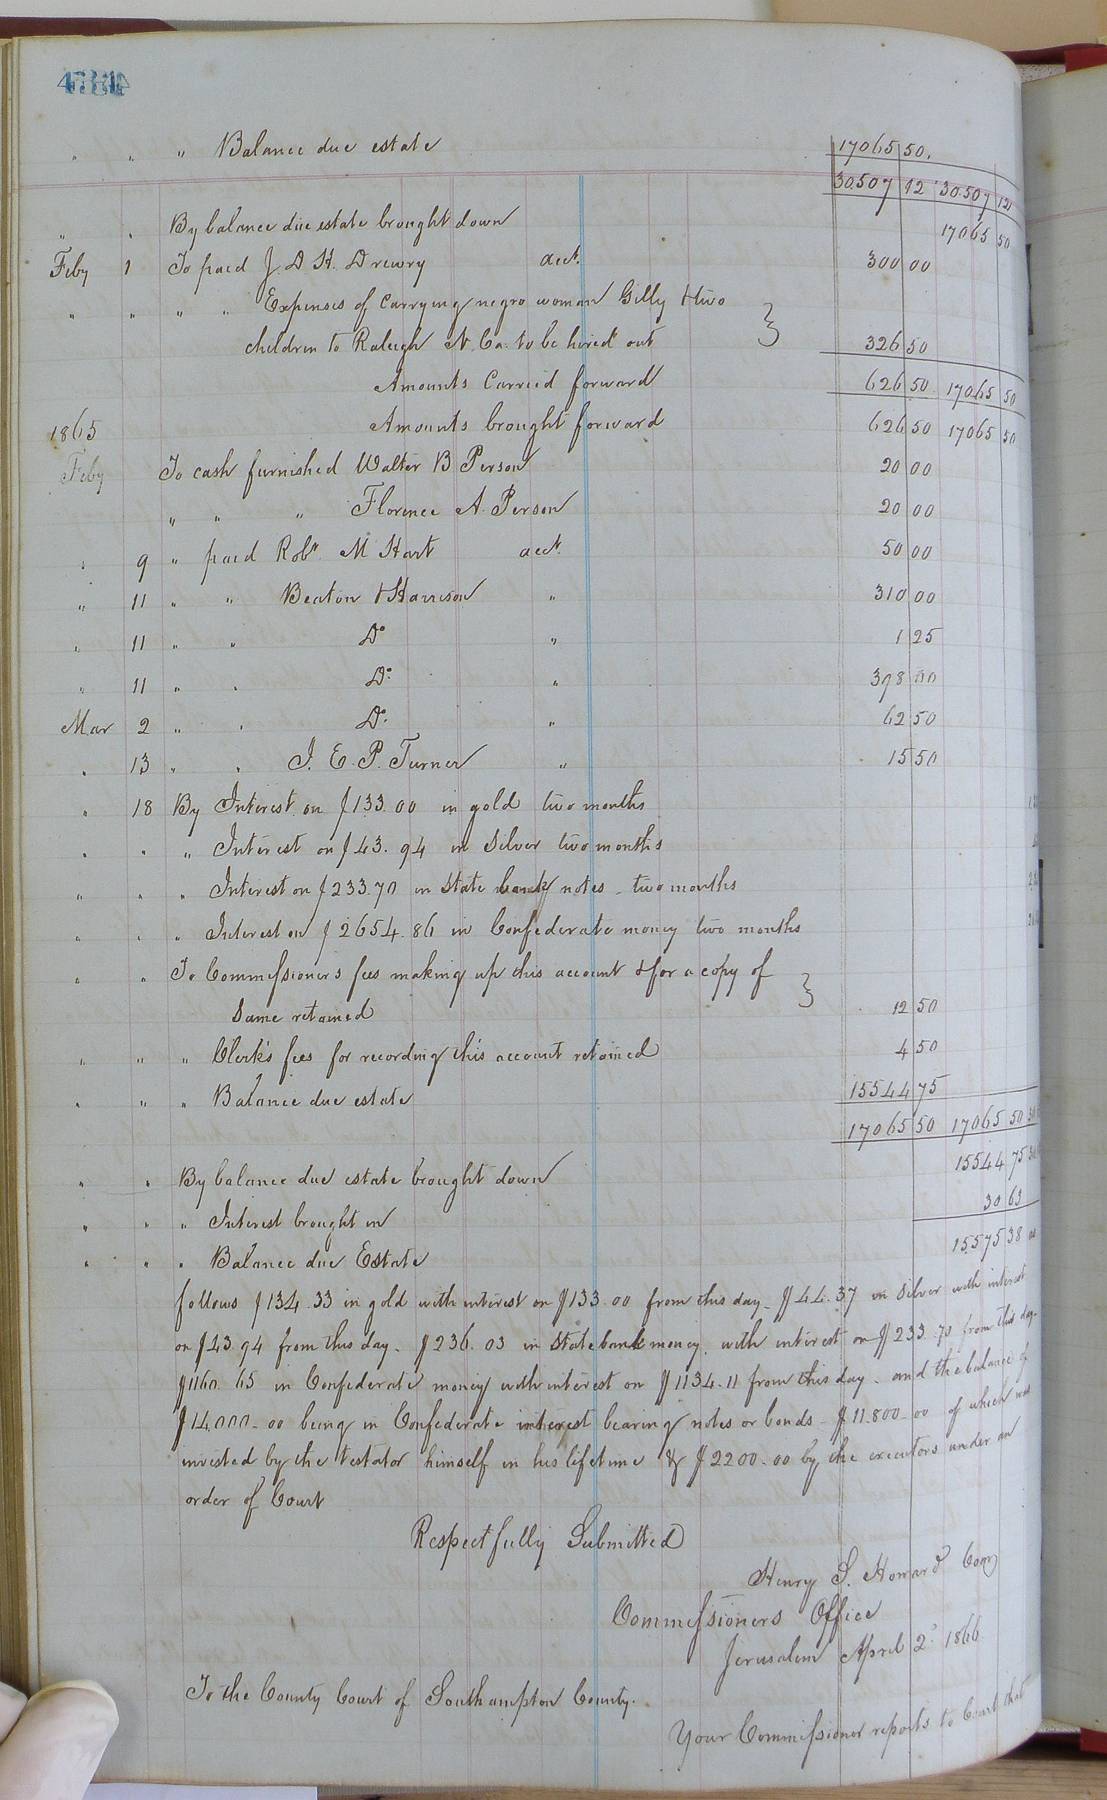 " " " Balance due estate 17065 50.
30.507 12 30.507 12
" " By balance due estate brought down 17065 50
Feby 1 To paid J. D. H. Drewry acct. 300 00
" " " " Expenses of Carrying negro woman Gilly & two
children to Raleigh N. Ca. to be hired out 326 50
Amounts Carried forward 626 50 17065 50
1865 Amounts brought forward 626 50 17065 50
Feby To cash furnished Walter B Person 20 00
" " " Florence A. Person 20 00
" 9 " paid Robt. M Hart acct. 50 00
" 11 " " Beaton & Harrison " 310 00
" 11 " " Do " 1 25
" 11 " " Do " 398 00
Mar 2 " " Do " 62 50
" 13 " " J. E. P. Turner " 15 50
" 18 By Interest on $133.00 in gold two months
" " " Interest on $43.94 in Silver two months
" " " Interest on $233.70 in State bank notes - two months
" " " Interest on $2654.86 in Confederate money two months
" " To Commissioners fees making up this account & for a copy of
Same retained 12 50
" " " Clerk's fees for recording this account retained 4 50
" " " Balance due estate 15544 75
17065 50 17065 50
" " By balance due estate brought down 15544 75
" " " Interest brought in 30 63
" " " Balance due Estate 15575 38 as
follows $134.33 in gold with interest on $133.00 from this day - $44.37 in Silver with interest
on $43.94 from this day - $236.03 in State bank money with interest on $233.70 from this day -
$1160.65 in Confederate money with interest on $1134.11 from this day - and the balance of
$14,000.00 being in Confederate interest bearing notes or bonds - $11.800.00 of which was
invested by the testator himself in his lifetime & $2200.00 by the executors under an
order of Court
Respectfully Submitted
Henry S. Howard Comr
Commissioners Office
Jerusalem April 2d 1866
To the County Court of Southampton County.
Your Commissioner reports to Court that